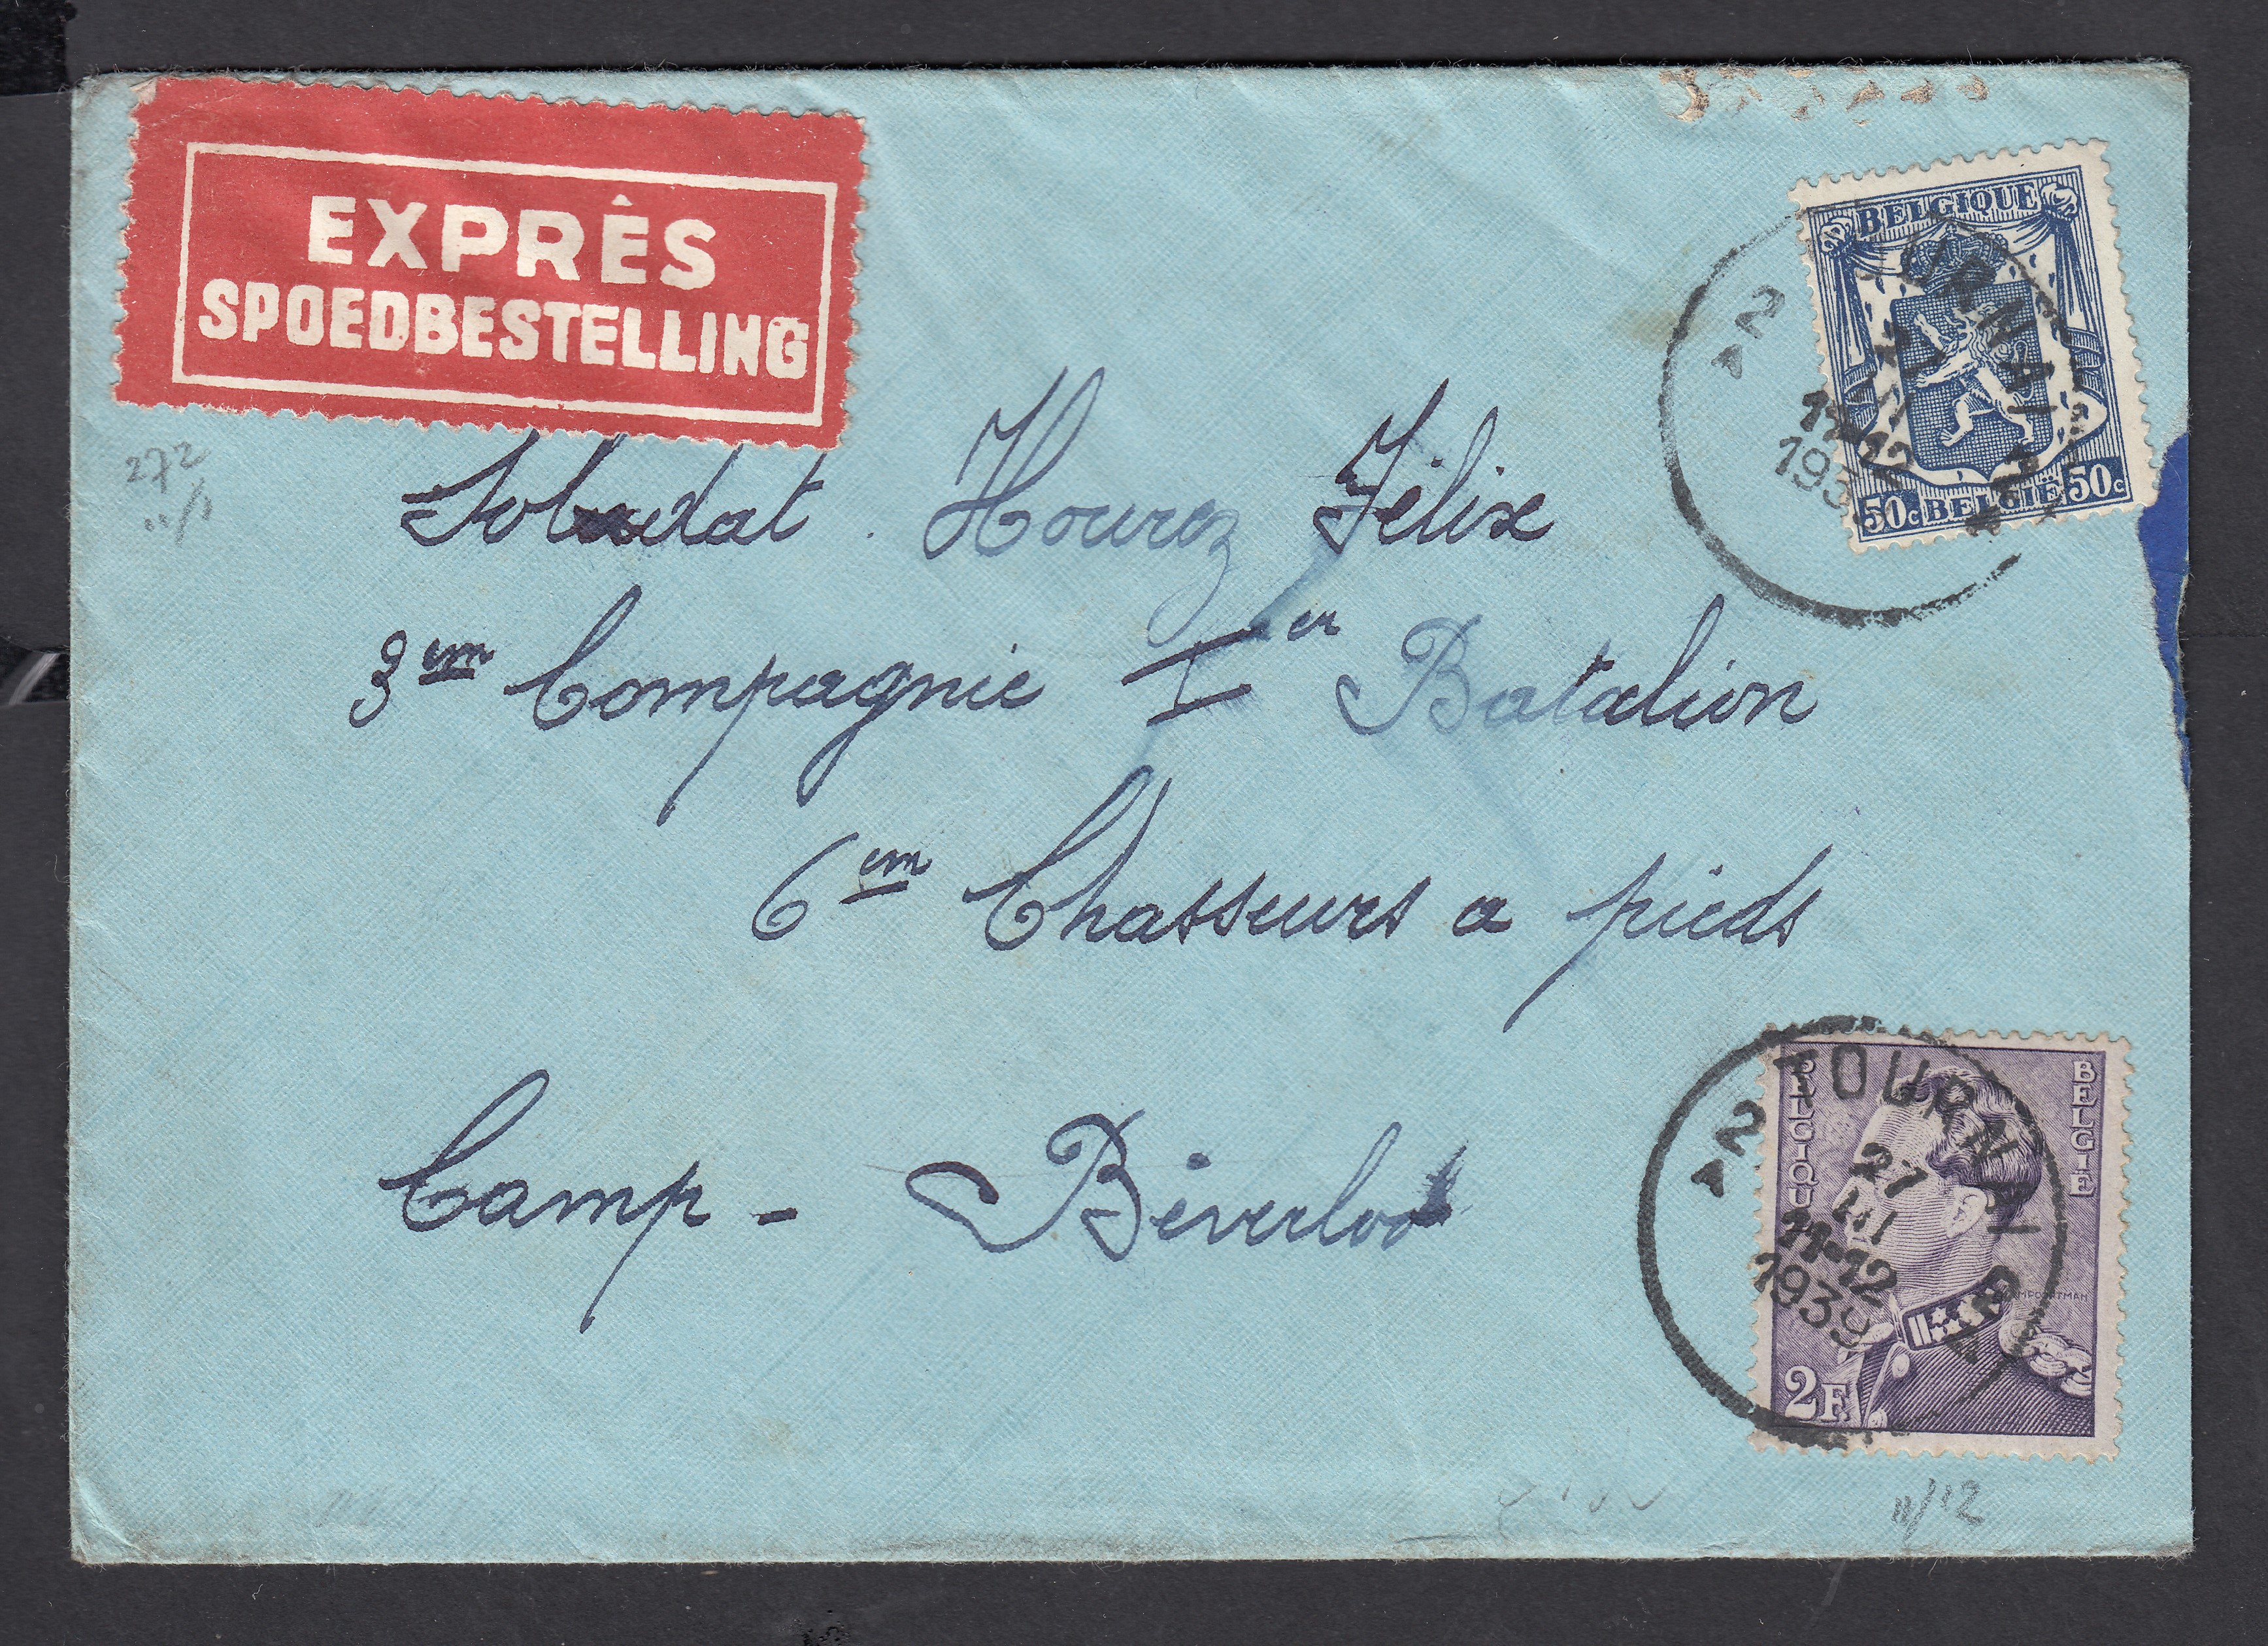 EXPRÊS
SPOEDBESTELLING
BELGIQUE
50c BELGIË 50c
2
A
TOURNAI
1939
272
Soldat Hourez Félix
3em Compagnie Ier Batalion
6em Chasseurs a pieds
Camp - Béverloo
BELGIQUE
BELGIE
2F.
2
A
TOURNAI
27
III
11-12
1939
11/12